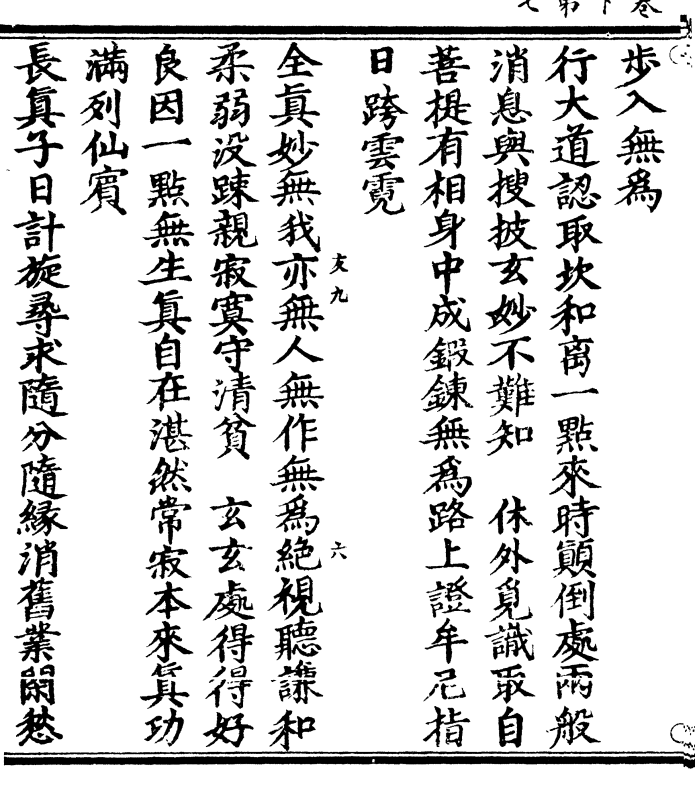 步入無爲
行大道認取坎和离一點來時顛倒處兩般
消息與搜披玄妙不難知　休外覓識取自
菩提有相身中成鍛鍊無爲路上證牟尼指
日跨雲霓
友九　六
全眞妙無我亦無人無作無爲絶視聽謙和
柔弱没踈親寂寞守清貧　玄玄處得得好
良因一點無生眞自在湛然常寂本來眞功
滿列仙賓
長眞子日計旋尋求隨分隨緣消舊業閑愁